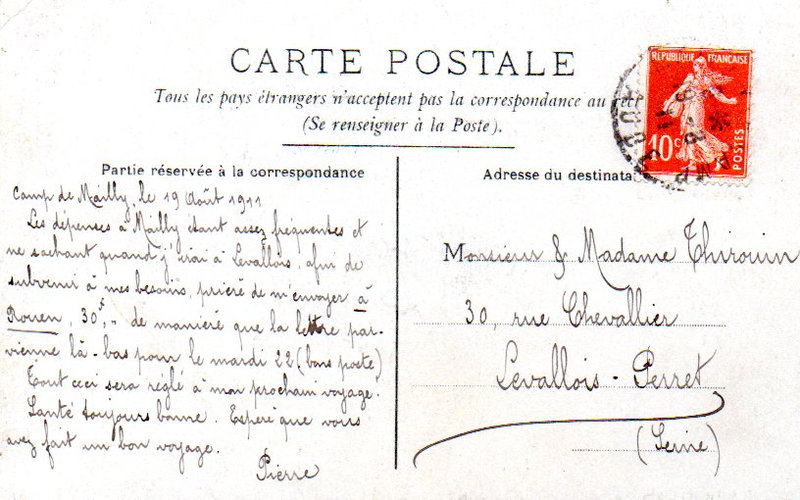 CARTE POSTALE
Tous les pays étrangers n'acceptent pas la correspondance au recto
(Se renseigner à la Poste).
Partie réservée à la correspondance
Camp de Mailly, le 19 Août 1911
Les dépenses à Mailly étant assez fréquentes et
ne sachant quand j'irai à Levallois, afin de
subvenir à mes besoins, prière de m'envoyer à
Rouen, 30f,, de manière que la lettre par-
vienne là-bas pour le mardi 22 (bons poste)
Tout ceci sera réglé à mon prochain voyage.
Santé toujours bonne. Espère que vous
avez fait un bon voyage.
Pierre
REPUBLIQUE FRANÇAISE
10c
POSTES
Adresse du destinata
Monsieur & Madame Thirouin
30, rue Chevallier
Levallois-Perret
(Seine)